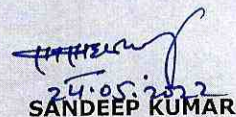 24.05.2022
SANDEEP KUMAR